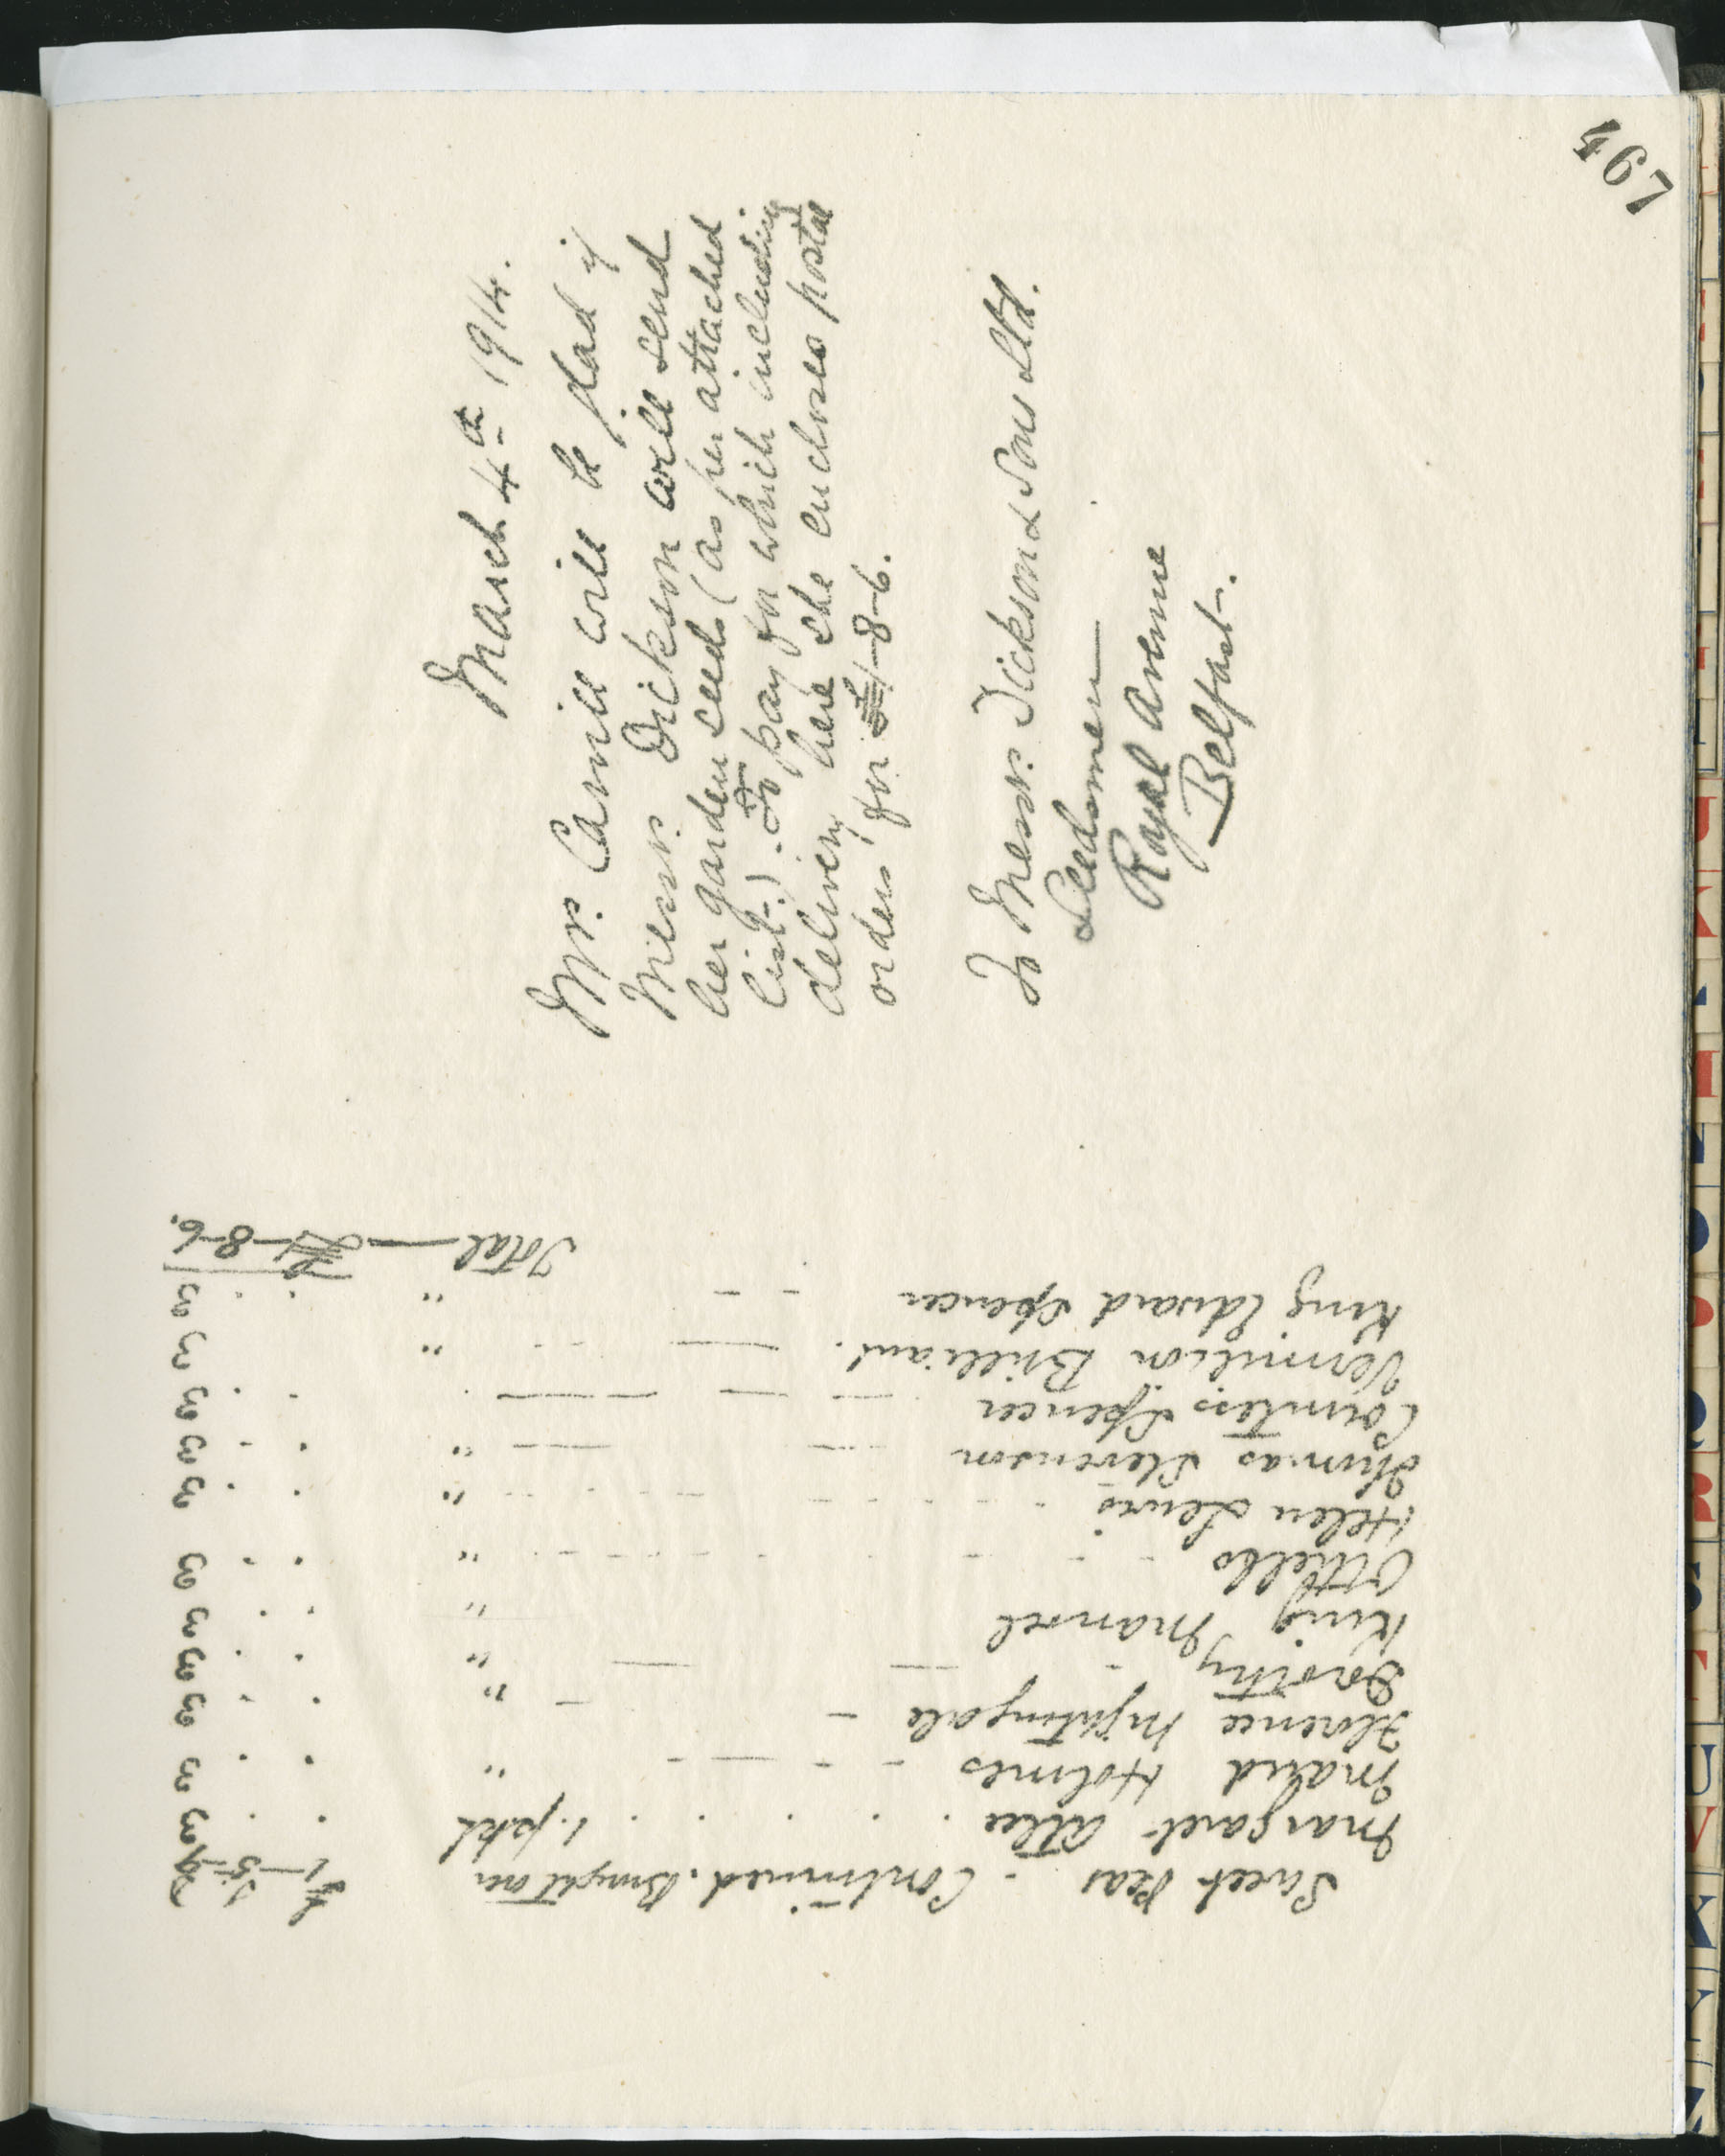 497
March 4th 1914.
Mrs. Carvill will be glad if
Messrs. Dickson will send
her garden seeds (as per attached
list.) - To pay for which including
delivery here she encloses postal
orders for £1-8-6.
To Messrs. Dickson & Sons Ltd.
Seedsmen
Royal Avenue
Belfast.
Sweet Peas - Continued. Brought over £1-5-9
Margaret Atlee . . . . . 1. pkt . . 3
Maud Holmes - - - - " . . 3
Florence Nightingale - - " . . 3
Dorothy - - - - " . . 3
King Mansel " . . 3
Othello - - - - - - - " . . 3
Helen Lewis - - - - - - " . . 3
Thomas Stevenson - - - - " . . 3
Countess Spencer - - - - . . 3
Vermilion Brilliant. - - - " 3
King Edward Spencer - - " . . 3
Total — £1-8-6.